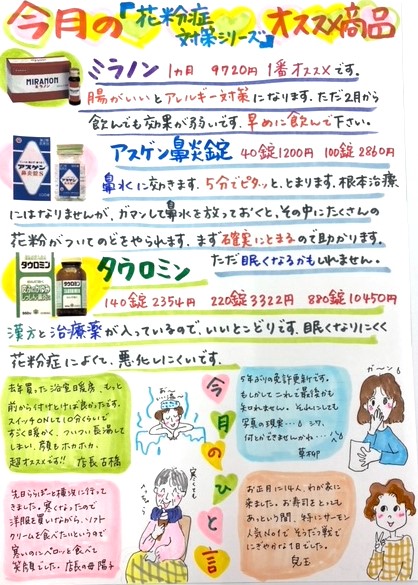 今月の『花粉症
対策シリーズ』オススメ商品
MIRANON
ミラノン
ミラノン 1ヵ月 9720円 1番オススメです。
腸がいいとアレルギー対策になります。ただ2月から
飲んでも効果が弱いです。早めに飲んで下さい。
アスゲン
鼻炎錠S
アスゲン鼻炎錠 40錠1200円 100錠2860円
鼻水に効きます。5分でピタッと、とまります。根本治療
にはなりませんが、ガマンして鼻水を放っておくと、その中にたくさんの
花粉がついてのどをやられます。まず確実にとまるので助かります。
ただ眠くなるかもしれません。
タウロミン
タウロミン
140錠2354円 220錠3322円 880錠10450円
漢方と治療薬が入っているので、いいとこどりです。眠くなりにくく
花粉症によくて、悪化しにくいです。
今月のひと言
去年買った浴室暖房、もっと
前から付けとけば良かったです。
スイッチONして10分くらいで
すぐ暖かく、ついつい長湯して
しまい、顔もホカホカ。
超オススメです!! 店長 古橋
お〜
いい湯〜
5年ぶりの免許更新です。
もしかしてこれで最後かも
知れません。それにしても
写真の現実…
何とかできませんかね…
草柳
ガーン
先日ららぽーと横浜に行って
きました。寒くなったので
洋服を買いながら、ソフト
クリームを食べたいというので
寒いのにペロッと食べて
笑顔でした。店長の母 陽子
寒くても
お正月に14人、わが家に
来ました。お寿司をとっても
あっという間、特にサーモン
人気No1で そうだつ戦で
にぎやかな1日でした。
児玉